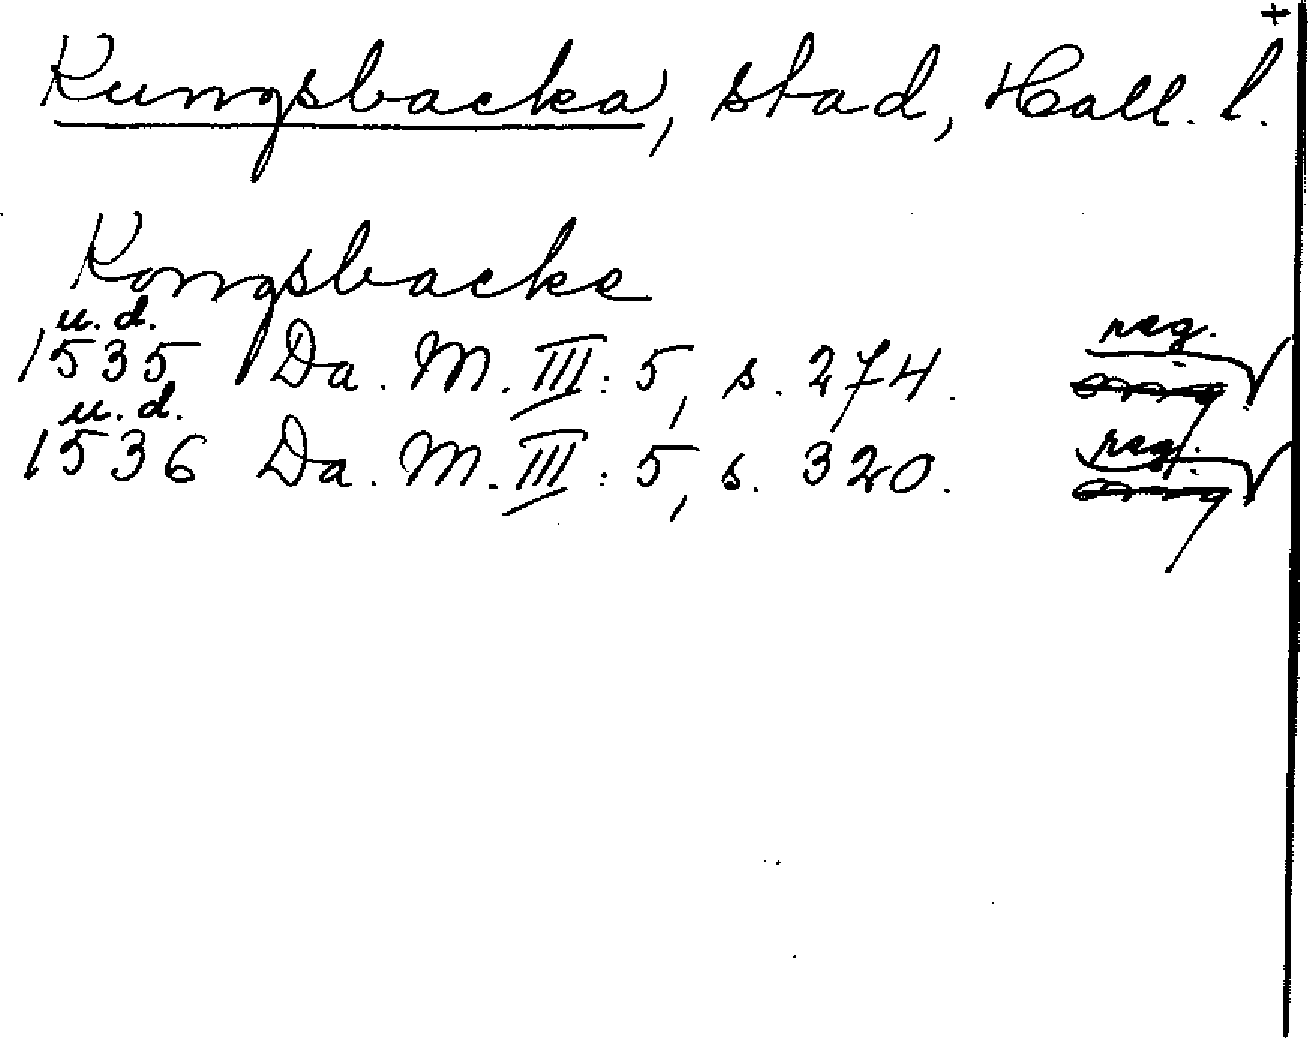 +
Kungsbacka, stad, Hall. l.
Kongsbacke
u. d.
1535 Da. M. III: 5, s. 274. reg.
u. d.
1536 Da. M. III: 5, s. 320. reg.